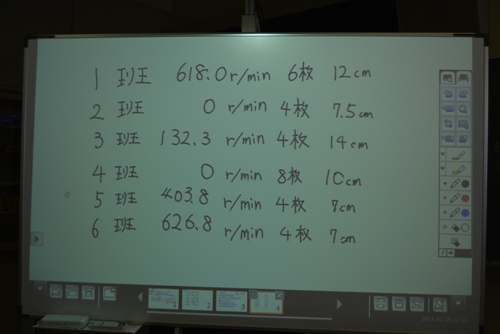 1 班 618.0 r/min 6枚 12cm
2 班 0 r/min 4枚 7.5cm
3 班 132.3 r/min 4枚 14cm
4 班 0 r/min 8枚 10cm
5 班 403.8 r/min 4枚 7cm
6 班 626.8 r/min 4枚 7cm